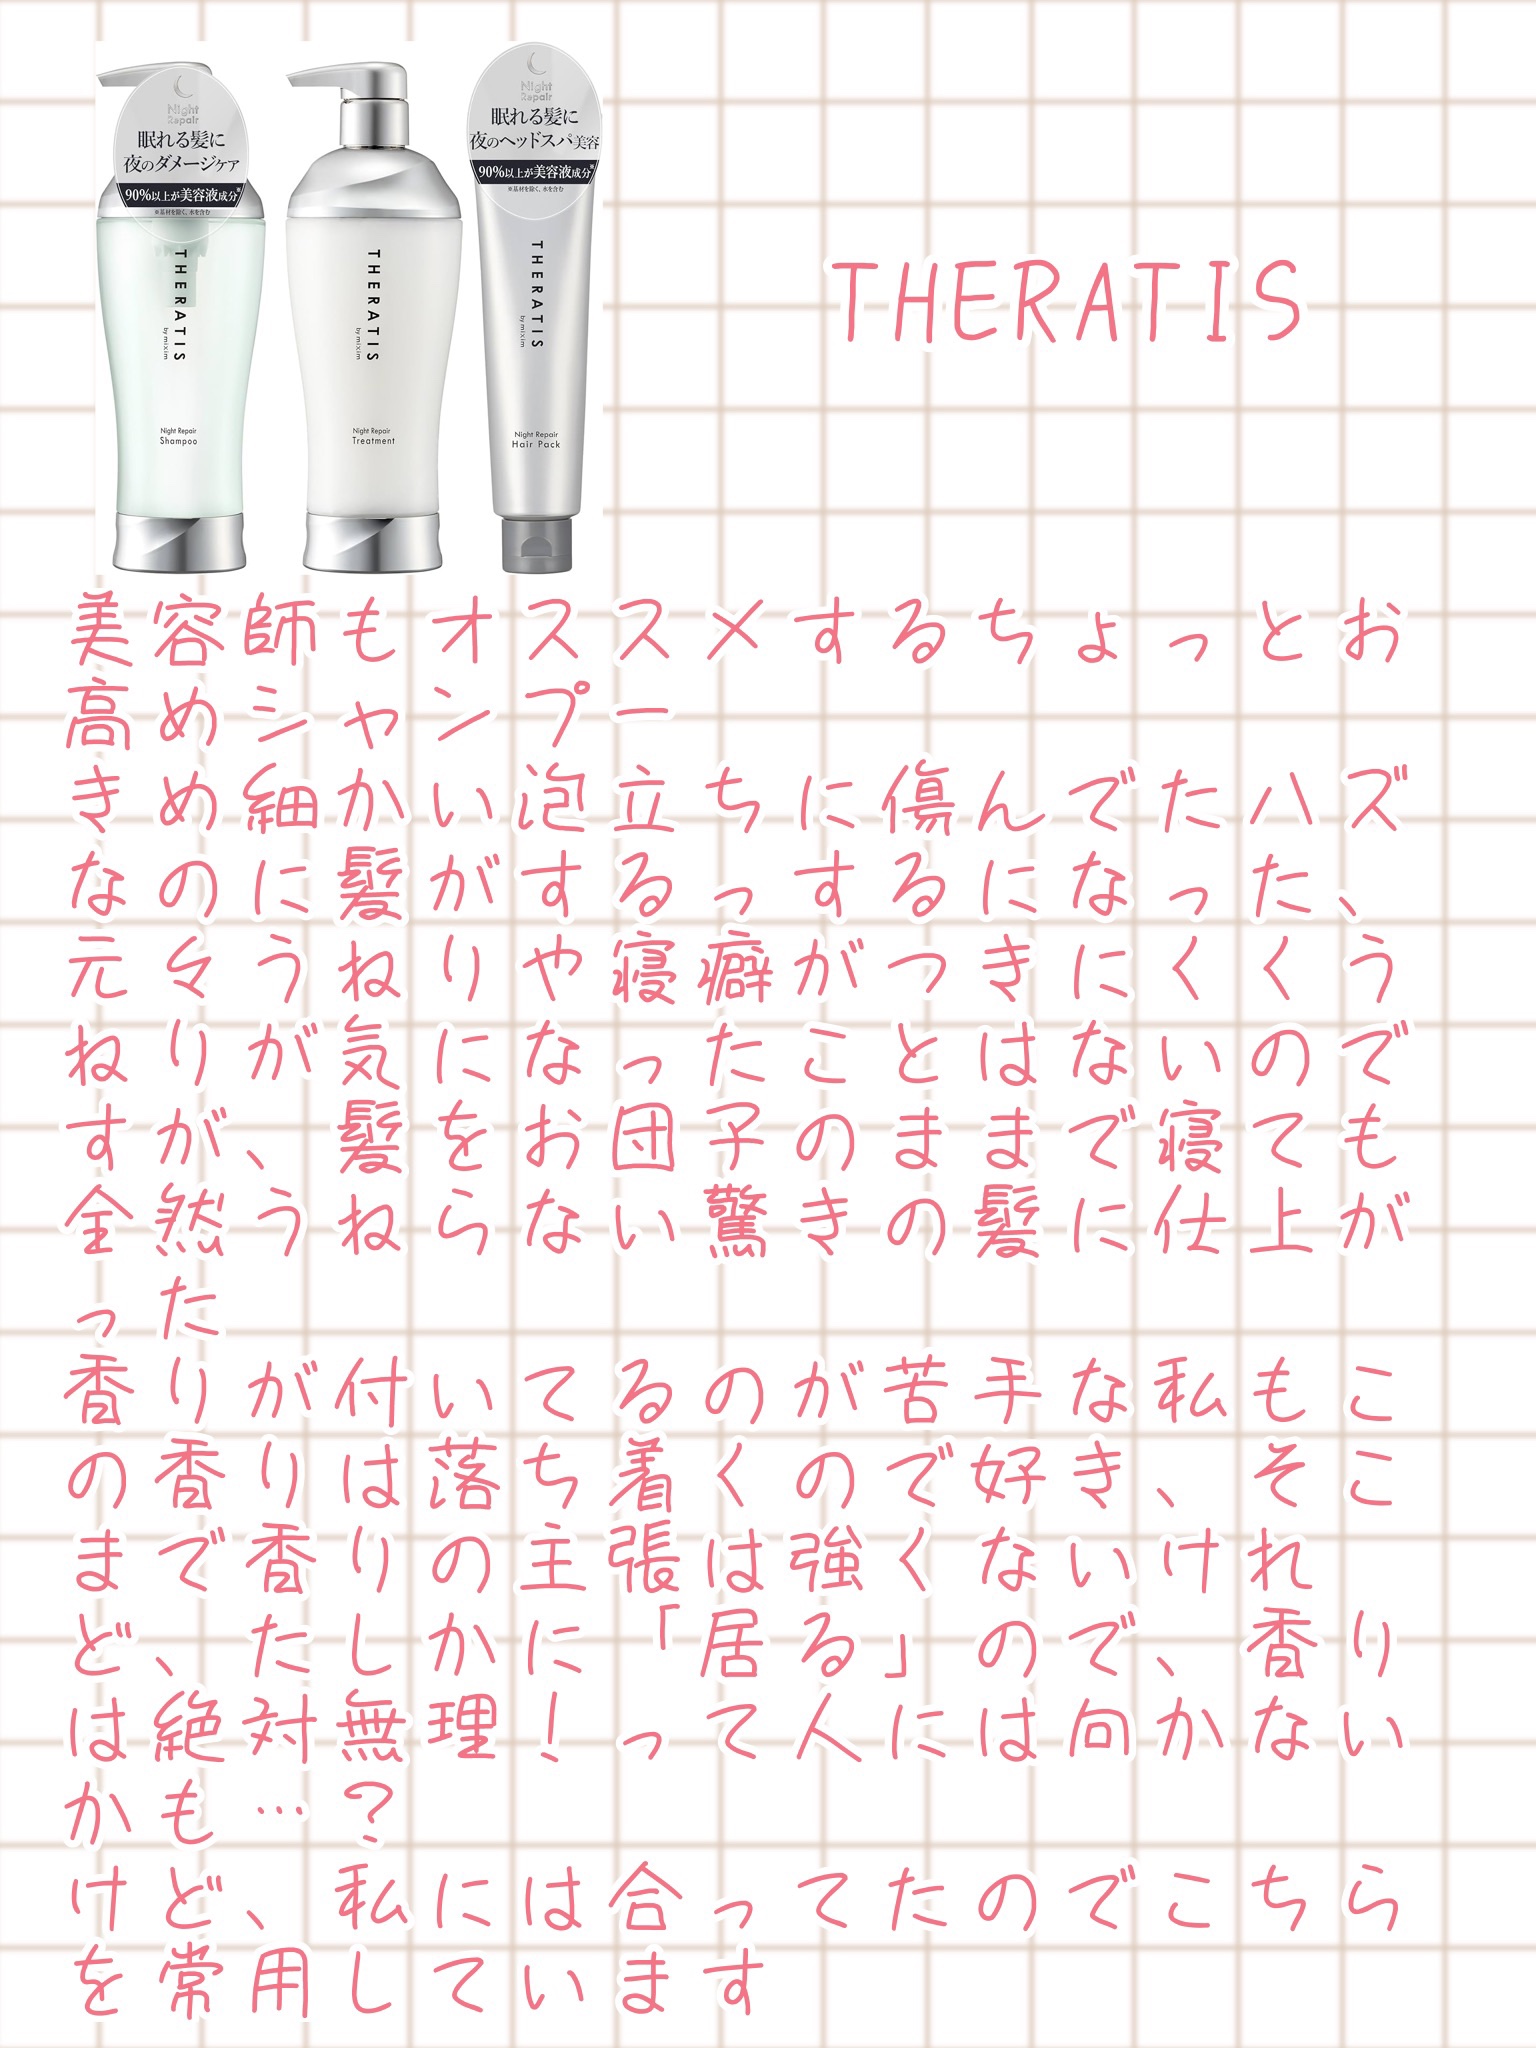 Night
Repair
眠れる髪に
夜のダメージケア
90%以上が美容液成分※
※基材を除く、水を含む
THERATIS
by mixim
Night Repair
Shampoo
THERATIS
by mixim
Night Repair
Treatment
Night
Repair
眠れる髪に
夜のヘッドスパ美容
90%以上が美容液成分※
※基材を除く、水を含む
THERATIS
by mixim
Night Repair
Hair Pack
THERATIS
美容師もオススメするちょっとお
高めシャンプー
きめ細かい泡立ちに傷んでたハズ
なのに髪がするっするになった、
元々うねりや寝癖がつきにくくう
ねりが気になったことはないので
すが、髪をお団子のままで寝ても
全然うねらない驚きの髪に仕上が
った
香りが付いてるのが苦手な私もこ
の香りは落ち着くので好き、そこ
まで香りの主張は強くないけれ
ど、たしかに「居る」ので、香り
は絶対無理!って人には向かない
かも…?
けど、私には合ってたのでこちら
を常用しています